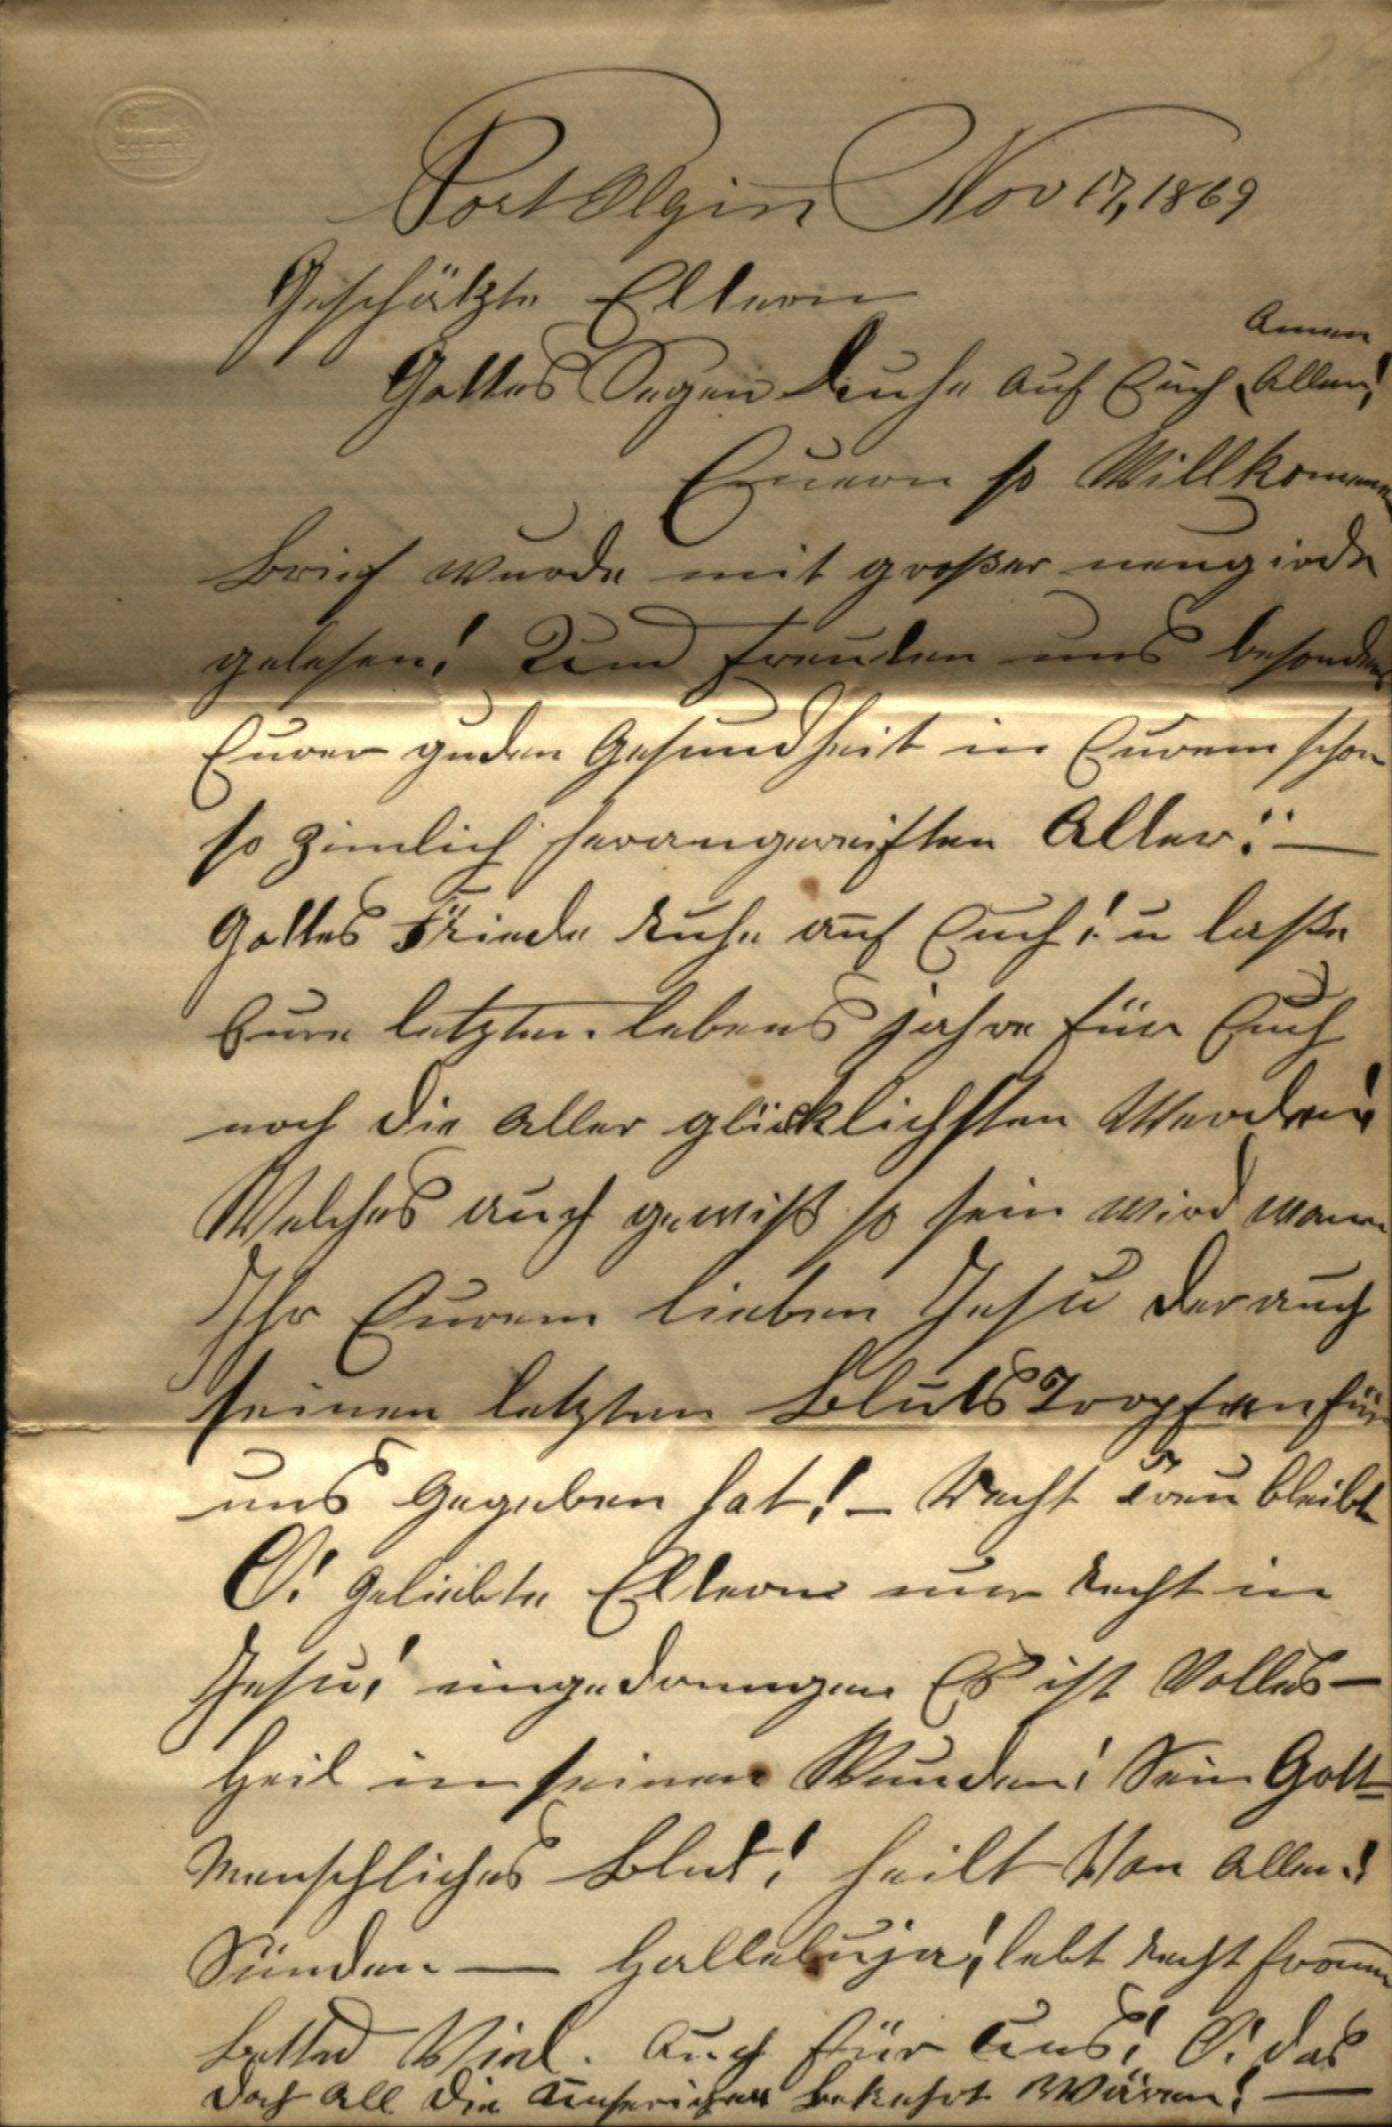 Port Elgin Nov 17, 1869
Geschätzte Eltern
Amen
Gottes Segen Ruhe auf Euch, Allen!
Euern so Willkommen
Brief wurde mit großer neugirde
gelesen! Und freuden uns besonders
Eurer guden Gesundheit in Eurem schon
so zimlich herangereiften Alter! —
Gottes Friede ruhe auf Euch! u laße
Eure letzten lebens jahre für Euch
noch die aller glücklichsten Werden!
Welches auch gewiß so sein wird wann
Ihr Eurem lieben Jesu der auch
seinen letzten Bluts Tropfen für
uns Gegeben hat! — Recht Treu bleibt
O! Geliebte Eltern nur recht in
Jesu! eingedrungen Es ist Volles —
Heil in seinen Wunden! Sein Gott=
Menschliches Blut! heilt Von Allen!
Sünden — Halleluja! lebt recht fromm
Betted Viel. Auch für Uns! O! das
doch all die Unserigen bekehrt Wären! —